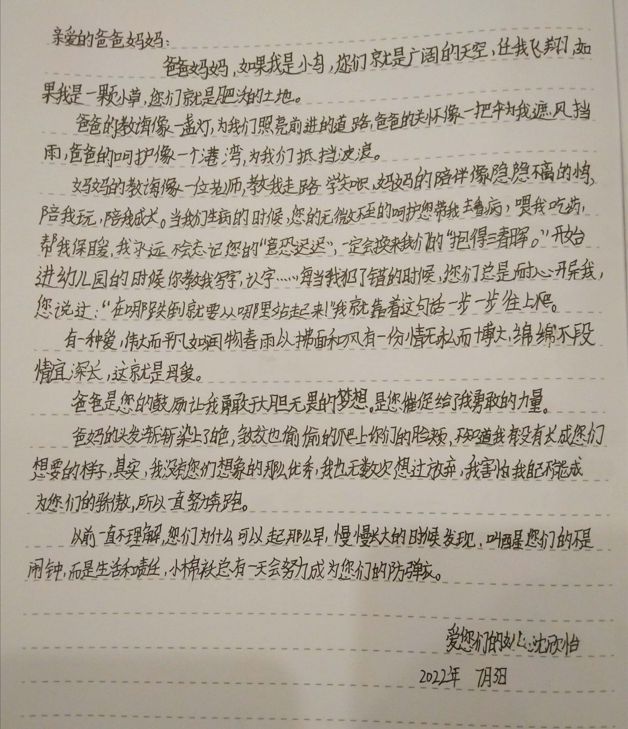 亲爱的爸爸妈妈：
爸爸妈妈，如果我是小鸟，您们就是广阔的天空，任我飞翔，如
果我是一颗小草，您们就是肥沃的土地。
爸爸的教诲像一盏灯，为我们照亮前进的道路，爸爸的关怀像一把伞为我遮风挡
雨，爸爸的呵护像一个港湾，为我们抵挡波浪。
妈妈的教诲像一位老师，教我走路 学知识，妈妈的陪伴像隐隐不离的
陪我玩，陪我成长。当我们生病的时候，您的无微不至的呵护您带我去看病，喂我吃药，
帮我保暖，我永远不会忘记您的“意恐迟迟”，一定会换来我们的“抱得三春晖。”开始
进幼儿园的时候你教我写字，认字……每当我犯了错的时候，您们总是耐心开导我，
您说过：“在哪跌倒就要从哪里站起来”我就靠着这句话一步一步往上爬。
有一种爱，伟大而平凡如润物春雨以拂面和风有一份情无私而博大，绵绵不段
情宜深长，这就是母爱。
爸爸是您的鼓励让我勇敢于大胆无畏的梦想。是您催促给了我勇敢的力量。
爸妈的头发渐渐染上了白色，皱纹也偷偷的爬上你们的脸颊，不知道我有没有长成您们
想要的样子，其实，我没有您们想象的那么优秀，我也无数次想过放弃，我害怕我自己不能成
为您们的骄傲，所以一直努力奔跑。
以前一直不理解，您们为什么可以起那么早，慢慢长大的时候发现，叫醒您们的不是
闹钟，而是生活和责任，小棉袄总有一天会努力成为您们的防弹衣。
爱您们的女儿：沈欣怡
2022年 7月3日